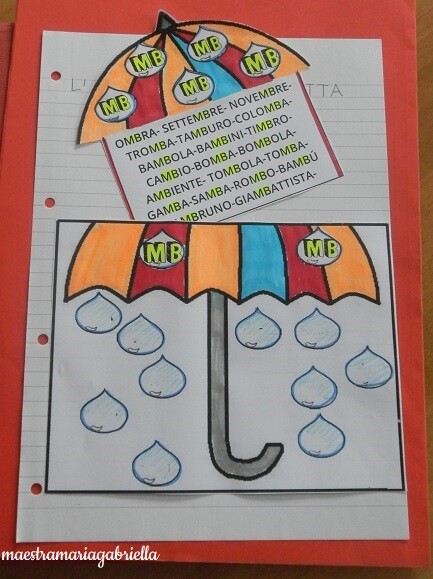 MB MB
MB MB MB
TTA
OMBRA- SETTEMBRE- NOVEMBRE-
TROMBA-TAMBURO-COLOMBA-
BAMBOLA-BAMBINI-TIMBRO-
CAMBIO-BOMBA-BOMBOLA-
AMBIENTE- TOMBOLA-TOMBA-
GAMBA-SAMBA-ROMBO-BAMBÚ
MBRUNO-GIAMBATTISTA-
MB MB
maestramariagabriella